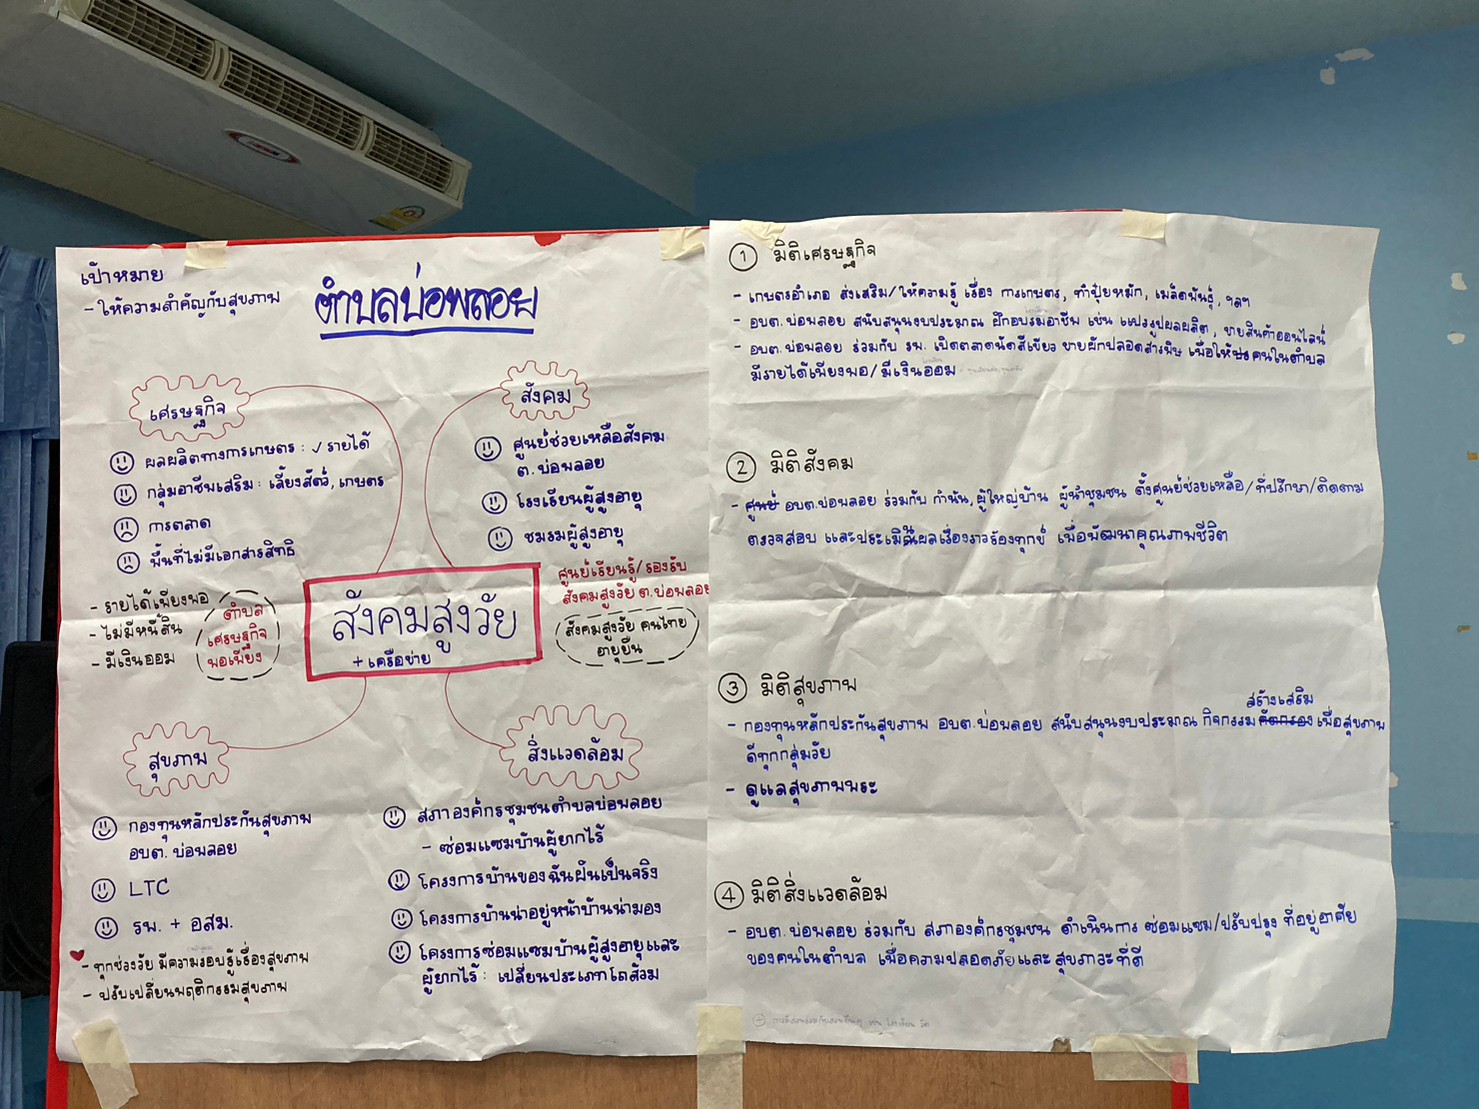 เป้าหมาย
- ให้ความสำคัญกับสุขภาพ
ตำบลบ่อพลอย
เศรษฐกิจ
ผลผลิตทางการเกษตร : ✓ รายได้
กลุ่มอาชีพเสริม : เลี้ยงสัตว์, เกษตร
การตลาด
พื้นที่ไม่มีเอกสารสิทธิ
- รายได้เพียงพอ
- ไม่มีหนี้สิน
- มีเงินออม
ตำบล
เศรษฐกิจ
พอเพียง
สังคม
ศูนย์ช่วยเหลือสังคม
ต. บ่อพลอย
โรงเรียนผู้สูงอายุ
ชมรมผู้สูงอายุ
ศูนย์เรียนรู้/รองรับ
สังคมสูงวัย ต. บ่อพลอย
สังคมสูงวัย คนไทย
อายุยืน
สังคมสูงวัย
+ เครือข่าย
สุขภาพ
กองทุนหลักประกันสุขภาพ
อบต. บ่อพลอย
LTC
รพ. + อสม.
- ทุกช่วงวัย มีความรอบรู้เรื่องสุขภาพ
- ปรับเปลี่ยนพฤติกรรมสุขภาพ
สิ่งแวดล้อม
สภาองค์กรชุมชนตำบลบ่อพลอย
- ซ่อมแซมบ้านผู้ยากไร้
โครงการบ้านของฉันฝันเป็นจริง
โครงการบ้านน่าอยู่หน้าบ้านน่ามอง
โครงการซ่อมแซมบ้านผู้สูงอายุและ
ผู้ยากไร้ : เปลี่ยนประเภทโถส้วม
① มิติเศรษฐกิจ
- เกษตรอำเภอ ส่งเสริม/ให้ความรู้ เรื่อง การเกษตร, ทำปุ๋ยหมัก, เมล็ดพันธุ์, ฯลฯ
- อบต. บ่อพลอย สนับสนุนงบประมาณ ฝึกอบรมอาชีพ เช่น แปรรูปผลผลิต, ขายสินค้าออนไลน์
- อบต. บ่อพลอย ร่วมกับ รพ. เปิดตลาดนัดสีเขียว ขายผักปลอดสารพิษ เพื่อให้ คนในตำบล
มีรายได้เพียงพอ/มีเงินออม
② มิติสังคม
- ศูนย์ อบต. บ่อพลอย ร่วมกับ กำนัน, ผู้ใหญ่บ้าน ผู้นำชุมชน ตั้งศูนย์ช่วยเหลือ/ที่ปรึกษา/ติดตาม
ตรวจสอบ และประเมินผลเรื่องราวร้องทุกข์ เพื่อพัฒนาคุณภาพชีวิต
③ มิติสุขภาพ
สร้างเสริม
- กองทุนหลักประกันสุขภาพ อบต. บ่อพลอย สนับสนุนงบประมาณ กิจกรรมคัดกรอง เพื่อสุขภาพ
ดีทุกกลุ่มวัย
- ดูแลสุขภาพพระ
④ มิติสิ่งแวดล้อม
- อบต. บ่อพลอย ร่วมกับ สภาองค์กรชุมชน ดำเนินการ ซ่อมแซม/ปรับปรุง ที่อยู่อาศัย
ของคนในตำบล เพื่อความปลอดภัยและ สุขภาวะที่ดี